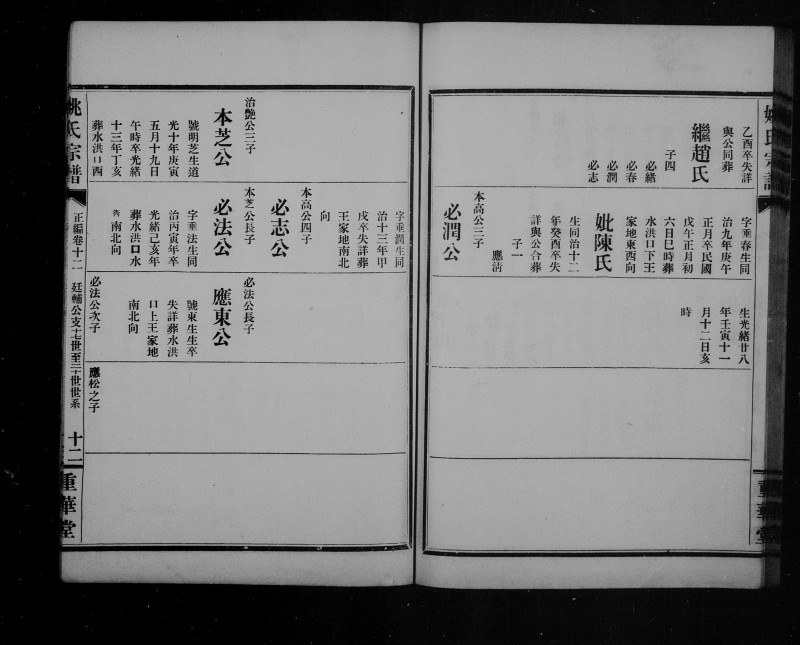 乙酉卒失詳
與公同葬
繼趙氏
子四
必緒
必春
必潤
必志
字重春生同
治九年庚午
正月卒民國
戊午正月初
六日巳時葬
水洪口下王
家地東西向
妣陳氏
生同治十二
年癸酉卒失
詳與公合葬
子一
應清
本高公三子
必潤公
生光緒廿八
年壬寅十一
月十二日亥
時
治艶公三子
本芝公
號明芝生道
光十年庚寅
五月十九日
午時卒光緒
十三年丁亥
葬水洪口西
字重潤生同
治十三年甲
戌卒失詳葬
王家地南北
向
本高公四子
必志公
本芝公長子
必法公
字重法生同
治丙寅年卒
光緒己亥年
葬水洪口水
南北向
必法公長子
應東公
號東生生卒
失詳葬水洪
口上王家地
南北向
必法公次子
應松之子
姚氏宗譜
正編卷十二
廷輔公支十七世至二十世世系
十二
重華堂